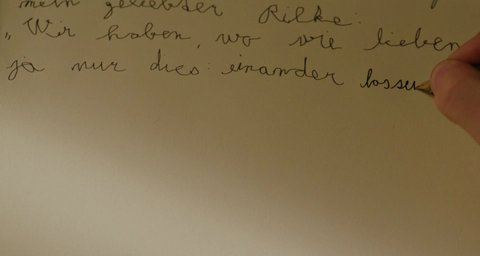 mein geliebter Rilke:
„Wir haben, wo wir lieben
ja nur dies: einander lassen